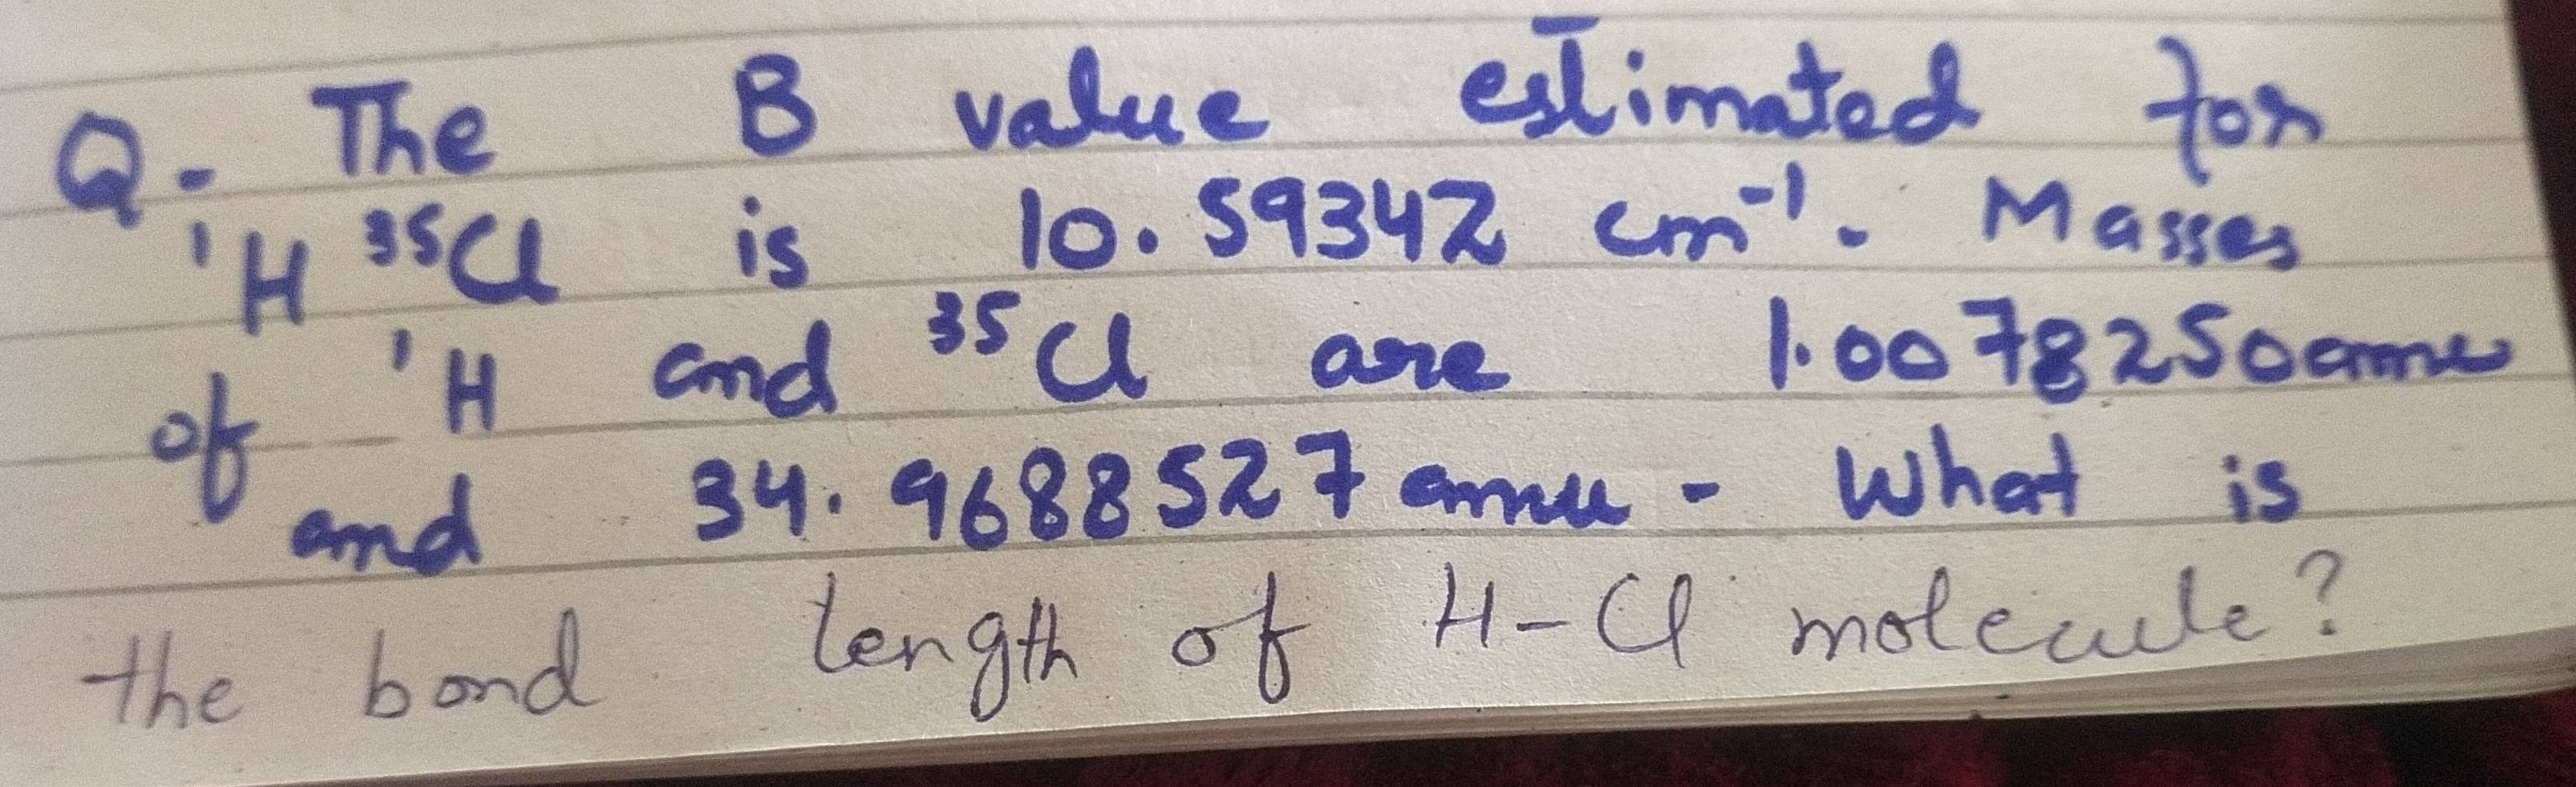 Q. The B value estimated for
¹H ³⁵Cl is 10.59342 cm⁻¹. Masses
of ¹H and ³⁵Cl are 1.0078250amu
and 34.9688527 amu - What is
the bond length of H-Cl molecule?